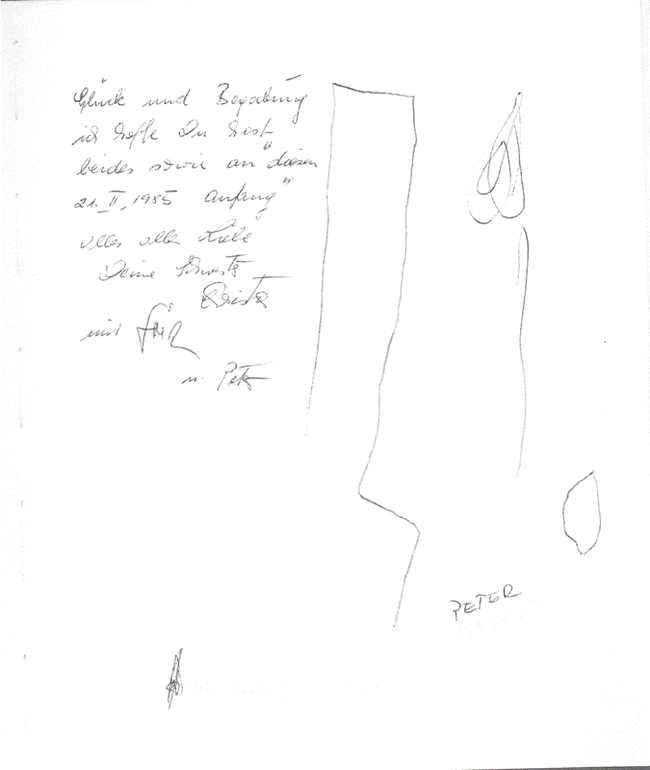 Glück und Begabung
ich hoffe Du hast
beides sowie an "diesen
21. II. 1985 anfang"
alles alles Liebe
Deine
mit
u. Peter
PETER